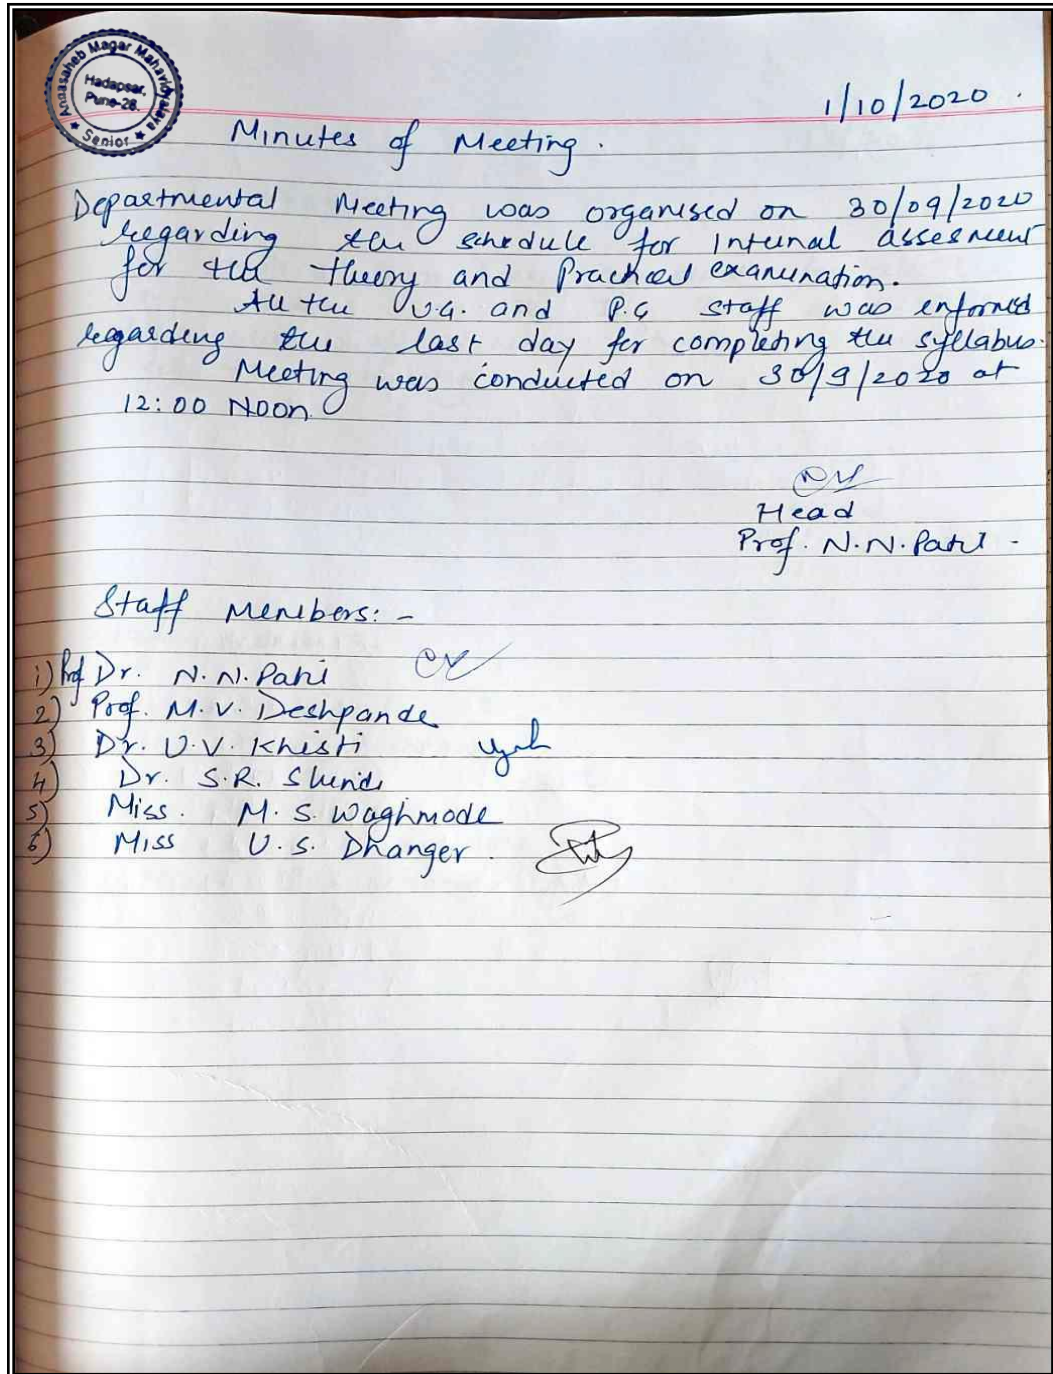 Annasaheb Magar Mahavidyalaya
Hadapsar,
Pune-28.
★ Senior ★
1/10/2020.
Minutes of Meeting.
Departmental Meeting was organised on 30/09/2020
regarding the schedule for Internal assesment
for the theory and Practical examination.
All the U.G. and P.G staff was informed
regarding the last day for completing the syllabus.
Meeting was conducted on 30/9/2020 at
12:00 Noon.
Head
Prof. N.N. Patil -
Staff Members: -
1) Prof Dr. N.N. Patil
2) Prof. M.V. Deshpande
3) Dr. U.V. Khisti
4) Dr. S.R. Shinde
5) Miss. M.S. Waghmode
6) Miss U.S. Dhanger.